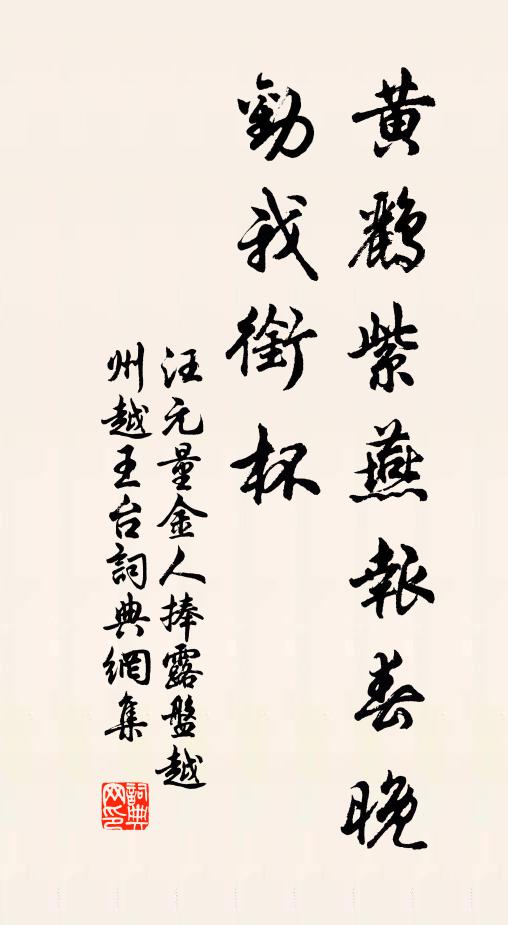 黄鸝紫燕報春晚
勸我銜杯
汪元量金人捧露盤越
州越王台詞典網集
詞典
网印